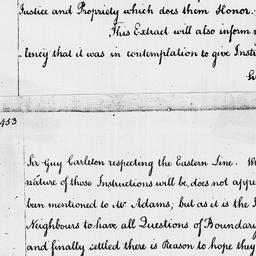 Justice and Propriety which does them Honor.
This Extract will also inform
lency that it was in contemplation to give Instr
453
Sir Guy Carleton respecting the Eastern Line. W
nature of those Instructions will be, does not appe
been mentioned to Mr Adams; but as it is the
Neighbours to have all Questions of Boundary
and finally settled there is Reason to hope they